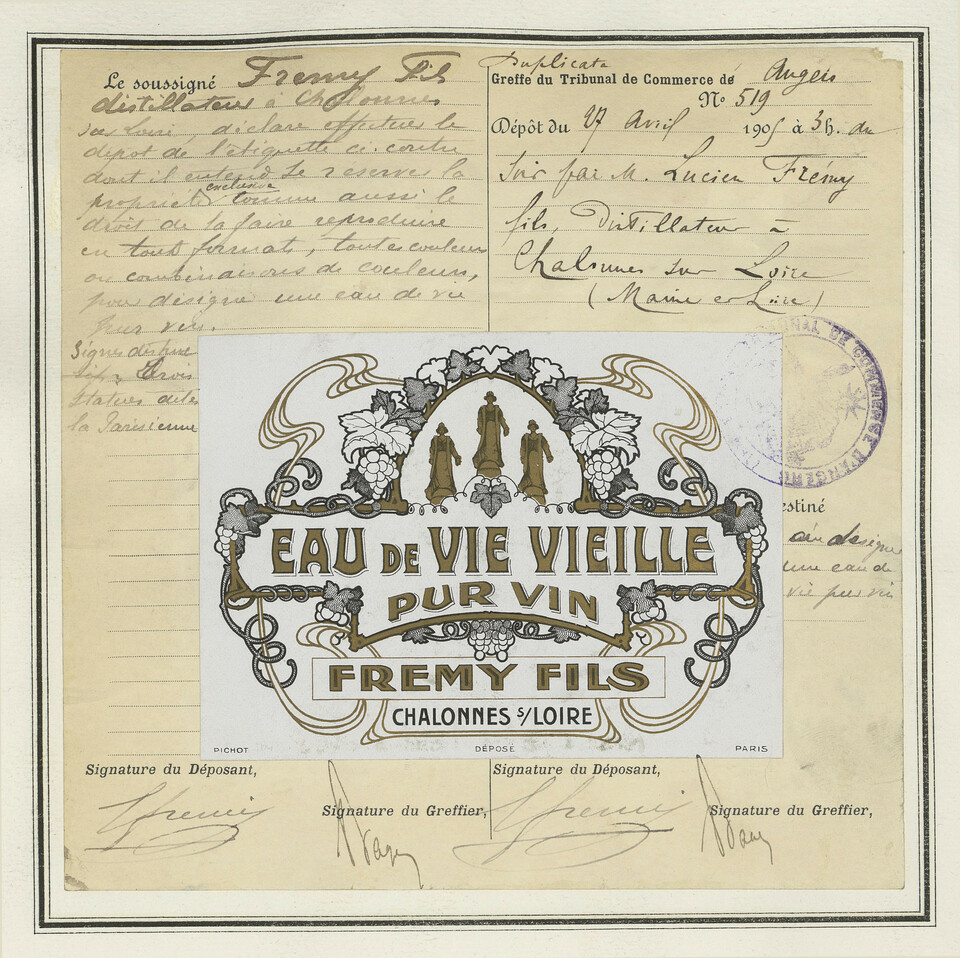 Le soussigné Fremy Fils
distillateur à Chalonnes
sur Loire, déclare effectuer le
dépot de l'étiquette ci-contre
dont il entend se réserver la
propriété exclusive comme aussi le
droit de la faire reproduire
en tous formats, toutes couleurs
ou combinaisons de couleurs,
pour désigner une eau de vie
pur vin.
Signes distinc
tifs: Trois
statues dites
la Parisienne
Duplicata
Greffe du Tribunal de Commerce de Angers
No 519
Dépôt du 27 Avril 1905 à 3h. du
soir par M. Lucien Frémy
fils, Distillateur à
Chalonnes sur Loire
(Maine et Loire)
TRIBUNAL DE COMMERCE D'ANGERS
estiné
à désigner
une eau de
vie pur vin
EAU DE VIE VIEILLE
PUR VIN
FREMY FILS
CHALONNES S/LOIRE
PICHOT DÉPOSÉ PARIS
Signature du Déposant,
Signature du Greffier,
Signature du Déposant,
Signature du Greffier,